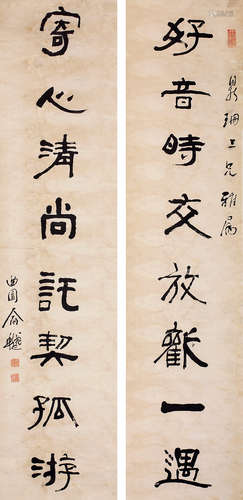 好音時交放歡一遇
晁珊三兄雅屬
寄心清尚託契孤游
曲園俞樾